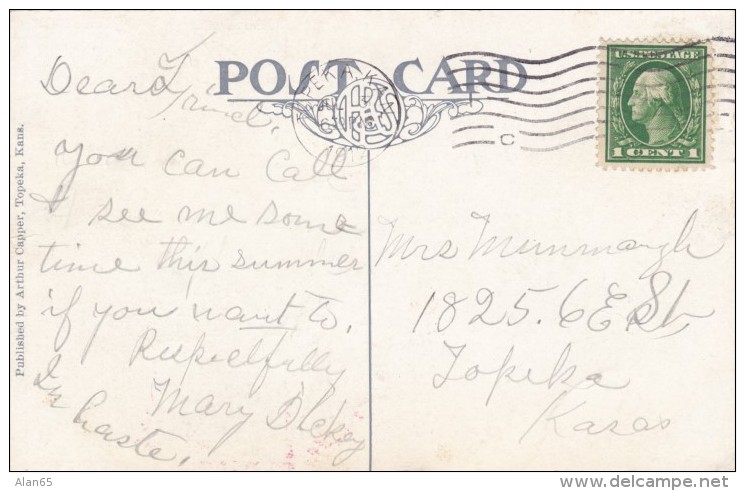 POST CARD
TOPEKA, KAS.
U.S. POSTAGE
1 CENT 1
C
Published by Arthur Capper, Topeka, Kans.
Dear Friend,
You can call
& see me some
time this summer
if you want to.
Respectfully
Mary Dickey
In haste,
Mrs
1825. 6 E St
Topeka
Kasas
Alan65
delcampe.net